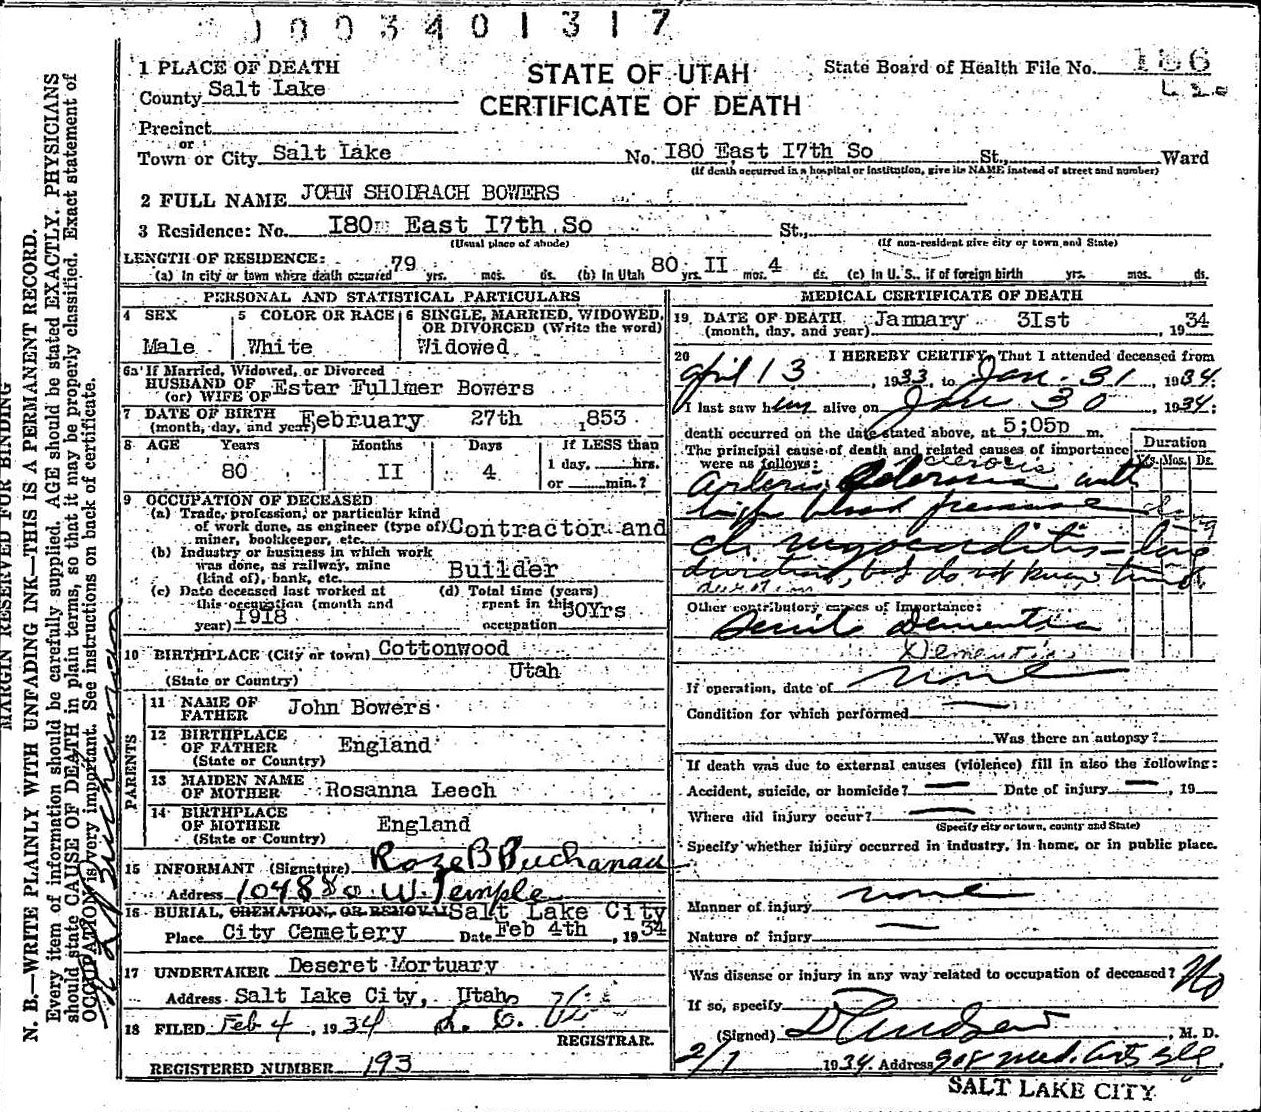 1003401317
1 PLACE OF DEATH
STATE OF UTAH
CERTIFICATE OF DEATH
State Board of Health File No. 186
County Salt Lake
Precinct
or
Town or City Salt Lake No. I80 East I7th So St., Ward
(If death occurred in a hospital or institution, give its NAME instead of street and number)
2 FULL NAME JOHN SHODRACH BOWERS
3 Residence: No. I80 East I7th So St.,
(Usual place of abode) (If non-resident give city or town and State)
LENGTH OF RESIDENCE:
(a) In city or town where death occurred 79 yrs. mos. ds. (b) In Utah 80 yrs. II mos. 4 ds. (c) In U. S., if of foreign birth yrs. mos. ds.
PERSONAL AND STATISTICAL PARTICULARS
4 SEX
Male
5 COLOR OR RACE
White
6 SINGLE, MARRIED, WIDOWED,
OR DIVORCED (Write the word)
Widowed
6a If Married, Widowed, or Divorced
HUSBAND OF
(or) WIFE OF Estar Fullmer Bowers
7 DATE OF BIRTH
(month, day, and year) February 27th 1853
8 AGE Years Months Days If LESS than
80 II 4 1 day, hrs.
or min.?
9 OCCUPATION OF DECEASED
(a) Trade, profession, or particular kind
of work done, as engineer (type of)
miner, bookkeeper, etc. Contractor and
(b) Industry or business in which work
was done, as railway, mine
(kind of), bank, etc. Builder
(c) Date deceased last worked at
this occupation (month and
year) 1918
(d) Total time (years)
spent in this
occupation 30Yrs
10 BIRTHPLACE (City or town) Cottonwood
(State or Country) Utah
PARENTS
11 NAME OF
FATHER John Bowers
12 BIRTHPLACE
OF FATHER England
(State or Country)
13 MAIDEN NAME
OF MOTHER Rosanna Leech
14 BIRTHPLACE
OF MOTHER England
(State or Country)
15 INFORMANT (Signature) Roze B Buchanan
Address 1048 So. W. Temple
16 BURIAL, CREMATION, OR REMOVAL Salt Lake City
Place City Cemetery Date Feb 4th, 1934
17 UNDERTAKER Deseret Mortuary
Address Salt Lake City, Utah
18 FILED Feb 4, 1934
REGISTRAR.
REGISTERED NUMBER 193
MEDICAL CERTIFICATE OF DEATH
19 DATE OF DEATH
(month, day, and year) January 3Ist, 1934
20 I HEREBY CERTIFY, That I attended deceased from
April 13, 1933, to Jan - 31, 1934;
I last saw him alive on Jan 30, 1934;
death occurred on the date stated above, at 5;05p m.
The principal cause of death and related causes of importance
were as follows:
Duration
Yrs. Mos. Ds.
sclerosis
Arterio sclerosis with
high blood pressure
ch myocarditis - long
duration, but do not know time
duration
Other contributory causes of importance:
Senile Dementia
Dementia
If operation, date of none
Condition for which performed
Was there an autopsy?
If death was due to external causes (violence) fill in also the following:
Accident, suicide, or homicide? Date of injury, 19
Where did injury occur?
(Specify city or town, county and State)
Specify whether injury occurred in industry, in home, or in public place.
none
Manner of injury
Nature of injury
Was disease or injury in any way related to occupation of deceased? No
If so, specify
(Signed), M. D.
2/1 1934 Address 908 Med. Arts
SALT LAKE CITY
MARGIN RESERVED FOR BINDING
N. B.—WRITE PLAINLY WITH UNFADING INK—THIS IS A PERMANENT RECORD.
Every item of information should be carefully supplied. AGE should be stated EXACTLY. PHYSICIANS
should state CAUSE OF DEATH in plain terms, so that it may be properly classified. Exact statement of
OCCUPATION is very important. See instructions on back of certificate.
Buchanan